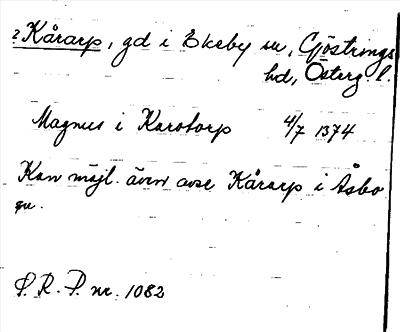 ? Kårarp, gd i Ekeby sn, Göstrings
hd, Österg l.
Magnus i Karatorp 4/7 1374
Kan möjl. även avse Kårarp i Åsbo
sn.
S. R. P. nr. 1082